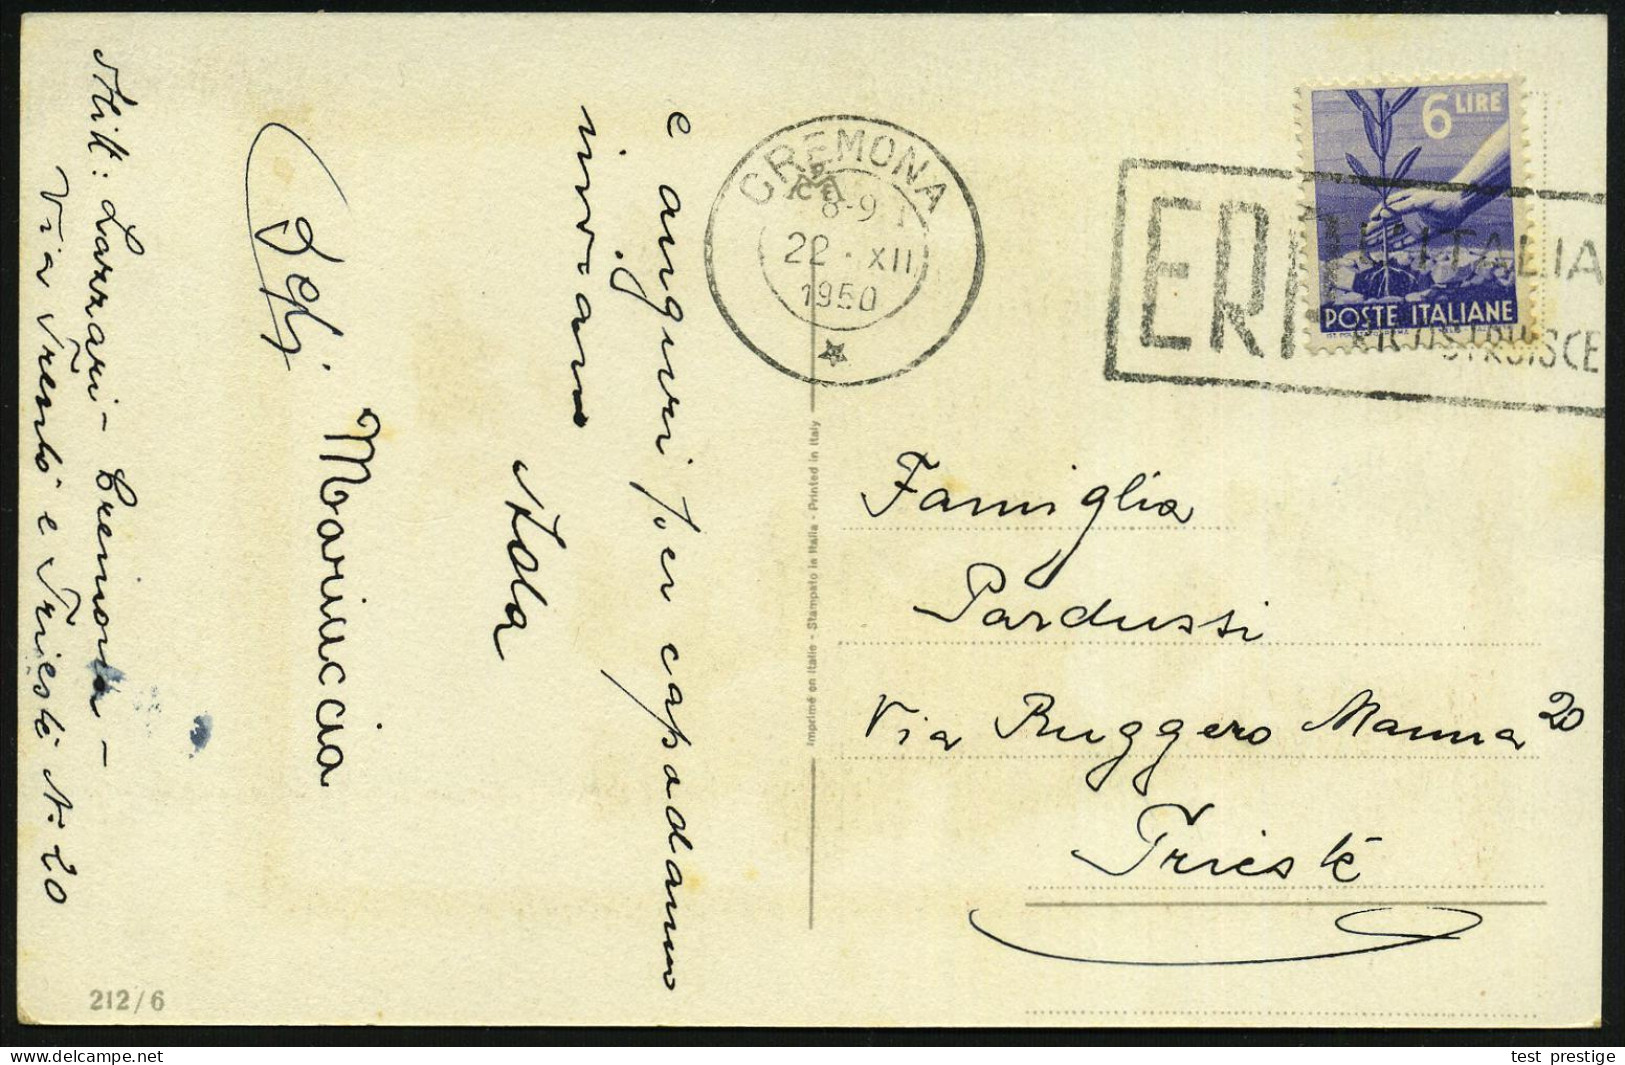 e auguri per capodanno
inviano
Ada
Mariuccia
Mitt: Lazzari - Cremona -
Via Trento e Trieste N. 20
CREMONA
8-9
22 · XII
1950
6 LIRE
POSTE ITALIANE
ERP
L'ITALIA
RICOSTRUISCE
Famiglia
Pardussi
Via Ruggero Manna 20
Trieste
Imprimé en Italie - Stampato in Italia - Printed in Italy
212/6
test prestige